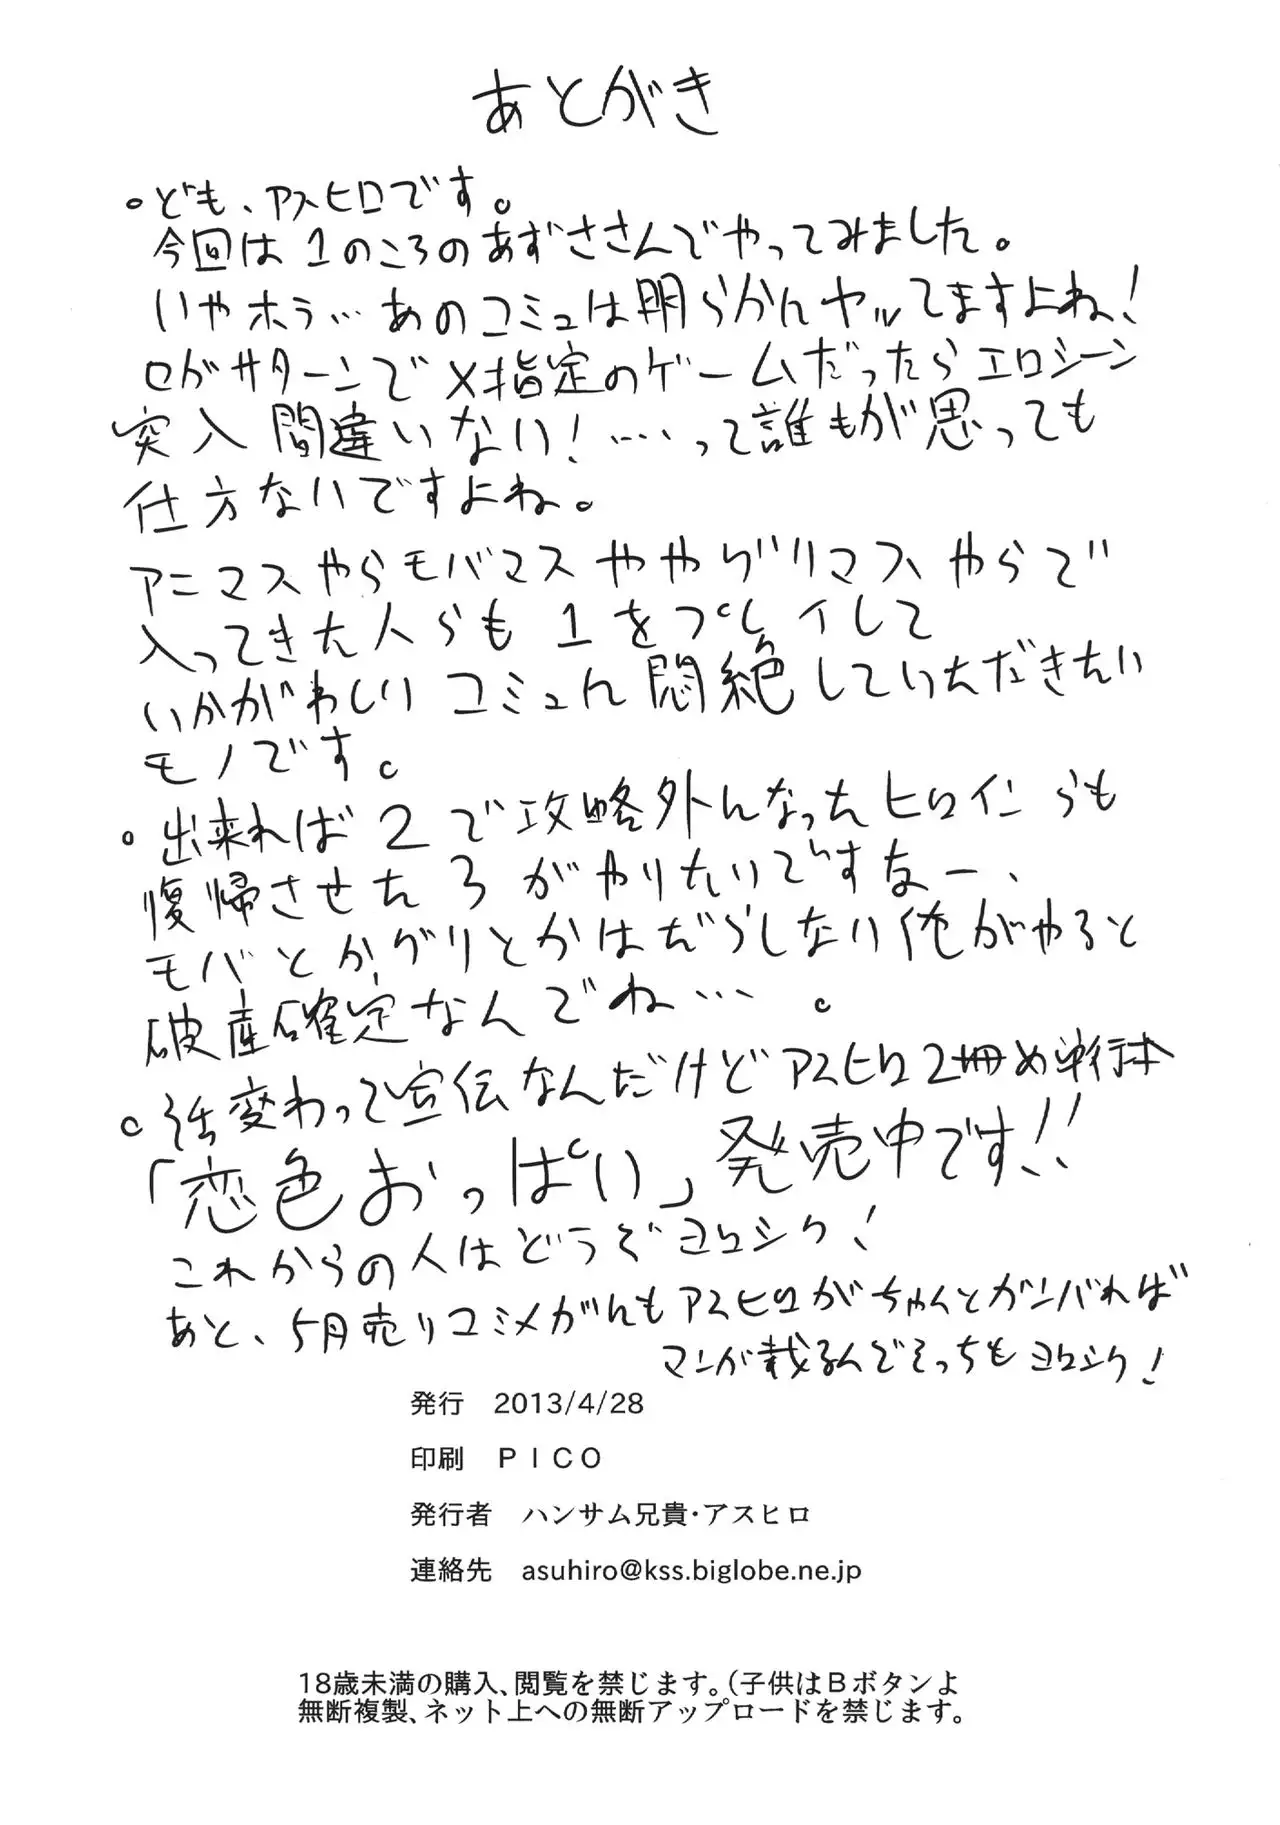 あとがき
・ども、アスヒロです。
今回は1のころのあずささんでやってみました。
いやホラ…あのコミュは明らかにヤッてますよね！
セガサターンでX指定のゲームだったらエロシーン
突入間違いない！……って誰もが思っても
仕方ないですよね。
アニマスやらモバマスややグリマスやらで
入ってきた人らも1をプレイして
いかがわしいコミュに悶絶していただきたい
モノです。
・出来れば2で攻略外になったヒロインらも
復帰させた3がやりたいですなー、
モバとかグリとかはだらしない俺がやると
破産確定なんでね…。
・話変わって宣伝なんだけどアスヒロ2冊め単行体
「恋色おっぱい」発売中です!!
これからの人はどうぞヨロシク！
あと、5月売りコミメガにもアスヒロがちゃんとガンバれば
マンが載るんでそっちもヨロシク！
発行　2013/4/28
印刷　ＰＩＣＯ
発行者　ハンサム兄貴・アスヒロ
連絡先　asuhiro@kss.biglobe.ne.jp
18歳未満の購入、閲覧を禁じます。（子供はＢボタンよ
無断複製、ネット上への無断アップロードを禁じます。